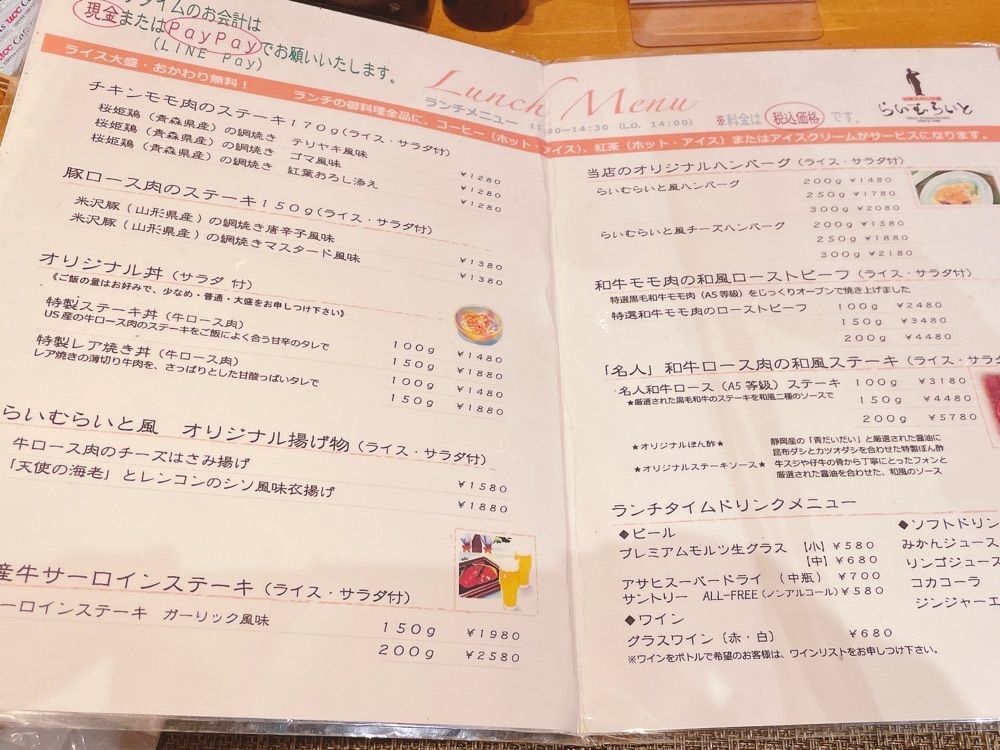 タイムのお会計は
現金またはPayPayでお願いいたします。
(LINE Pay)
ライス大盛・おかわり無料！　ランチの御料理全品に、コーヒー（ホット・アイス）、紅茶（ホット・アイス）またはアイスクリームがサービスになります。
Lunch Menu
ランチメニュー 11:00～14:30 (L.O. 14:00)
※料金は 税込価格 です。
らいむらいと
チキンモモ肉のステーキ170g(ライス・サラダ付)
桜姫鶏(青森県産)の網焼き テリヤキ風味 ¥1280
桜姫鶏(青森県産)の網焼き ゴマ風味 ¥1280
桜姫鶏(青森県産)の網焼き 紅葉おろし添え ¥1280
豚ロース肉のステーキ150g(ライス・サラダ付)
米沢豚(山形県産)の網焼き唐辛子風味 ¥1380
米沢豚(山形県産)の網焼きマスタード風味 ¥1380
オリジナル丼(サラダ 付)
《ご飯の量はお好みで、少なめ・普通・大盛をお申しつけ下さい》
特製ステーキ丼(牛ロース肉) 100g ¥1480
US産の牛ロース肉のステーキをご飯によく合う甘辛のタレで 150g ¥1880
特製レア焼き丼(牛ロース肉) 100g ¥1480
レア焼きの薄切り牛肉を、さっぱりとした甘酸っぱいタレで 150g ¥1880
らいむらいと風 オリジナル揚げ物(ライス・サラダ付)
牛ロース肉のチーズはさみ揚げ ¥1580
「天使の海老」とレンコンのシソ風味衣揚げ ¥1880
産牛サーロインステーキ(ライス・サラダ付)
ーロインステーキ ガーリック風味 150g ¥1980
200g ¥2580
当店のオリジナルハンバーグ(ライス・サラダ付)
らいむらいと風ハンバーグ 200g ¥1480
250g ¥1780
300g ¥2080
らいむらいと風チーズハンバーグ 200g ¥1580
250g ¥1880
300g ¥2180
和牛モモ肉の和風ローストビーフ(ライス・サラダ付)
特選黒毛和牛モモ肉(A5等級)をじっくりオーブンで焼き上げました
特選和牛モモ肉のローストビーフ 100g ¥2480
150g ¥3480
200g ¥4480
「名人」和牛ロース肉の和風ステーキ(ライス・サラ
名人和牛ロース(A5等級)ステーキ 100g ¥3180
★厳選された黒毛和牛のステーキを和風二種のソースで 150g ¥4480
200g ¥5780
★オリジナルぽん酢★ 静岡産の「青だいだい」と厳選された醤油に
昆布ダシとカツオダシを合わせた特製ぽん酢
★オリジナルステーキソース★ 牛スジや仔牛の骨から丁寧にとったフォンと
厳選された醤油を合わせた、和風のソース
ランチタイムドリンクメニュー
◆ビール
プレミアムモルツ生グラス 【小】¥580
【中】¥680
アサヒスーパードライ (中瓶) ¥700
サントリー ALL-FREE(ノンアルコール)¥580
◆ワイン
グラスワイン〔赤・白〕 ¥680
※ワインをボトルで希望のお客様は、ワインリストをお申しつけ下さい。
◆ソフトドリン
みかんジュース
リンゴジュース
コカコーラ
ジンジャーエ